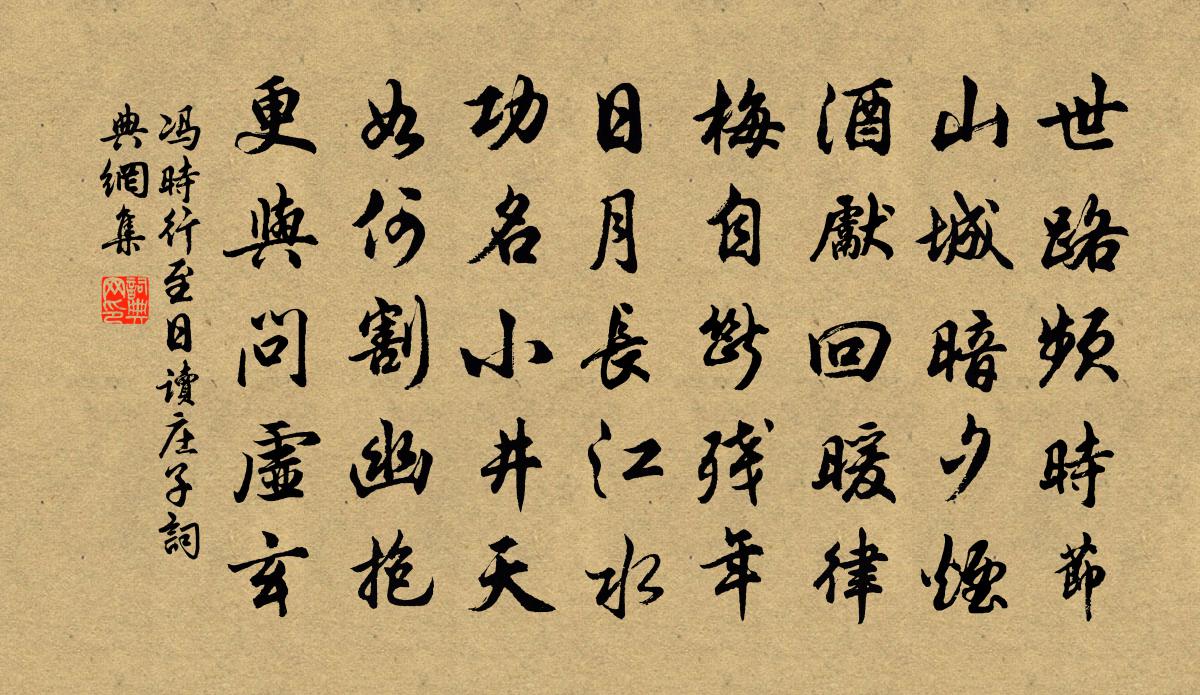 世路頻時節
山城暗夕煙
酒獻回暖律
梅自斷殘年
日月長江水
功名小井天
如何割幽抱
更與問虛玄
馮時行至日讀庄子詞
典網集
詞典
网印